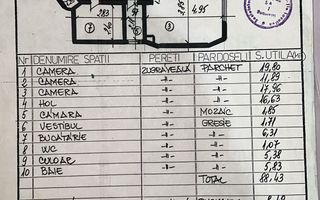 2,83
4,95
7
3
Nr DENUMIRE SPATII PERETI PARDOSELI S. UTILA
1 CAMERA ZUGRAVEALA PARCHET 19,80
2 CAMERA -"- -"- 11,29
3 CAMERA -"- -"- 17,96
4 HOL -"- -"- 16,63
5 CĂMARA -"- MOZAIC 1,85
6 VESTIBUL -"- GRESIE 1,71
7 BUCĂTĂRIE -"- -"- 6,31
8 WC -"- -"- 1,07
9 CULOAR -"- -"- 5,38
10 BAIE -"- -"- 5,83
TOTAL 88,43